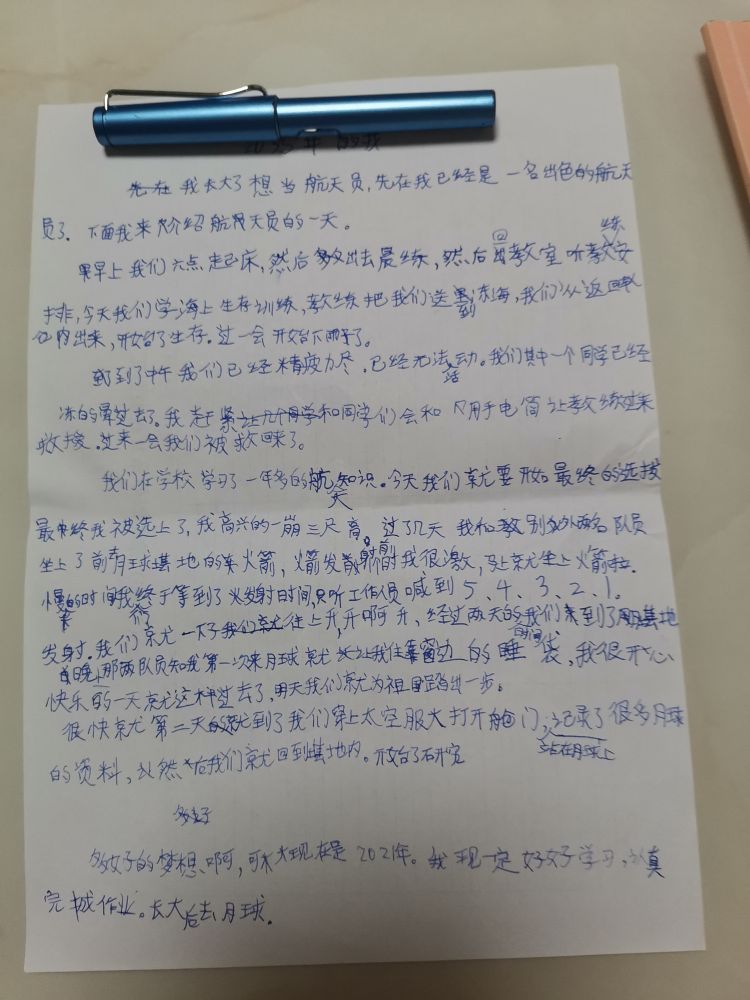 2035年的我
我长大了想当航天员,先在我已经是一名出色的航天
员了。下面我来介绍航天员的一天。
早上我们六点走起床,然后出去晨练,然后回教室听教练安
排,今天我们学海上生存训练,教练把我们送到冻海,我们从返回
仓内出来,开始了生存。过一会开始下雨了。
到了中午我们已经精疲力尽,已经无法活动。我们其中一个同学已经
冻的晕过去了。我和同学们会和用手电筒让教练过来
救援。过来一会我们被救回来了。
我们在学校学习了一年多的航天知识。今天我们就要开始最终的选拔
最终我被选上了,我高兴的一崩三尺高。过了几天我和别外两名队员
坐上了前有球基地的火箭,火箭发射前我很激,马上就坐上火箭拉。
我终于等到了火发射时间,只听工作人员喊到5、4、3、2、1。
发射。我们就往上升,升啊升,经过两天的时间我们来到了基地
那两队员知我第一次来月球就让我住窗边的睡袋,我很开心
快乐的一天就这样过去了,明天我们就为祖国踏出一步。
很快就第二天到了我们穿上太空服大打开舱门,记录了很多月球
站在月球上
的资料,然后我们就回到基地内。开始了研究
多好的梦想啊,可现在是2021年。我现一定好好学习,认真
完城作业。长大后去月球。